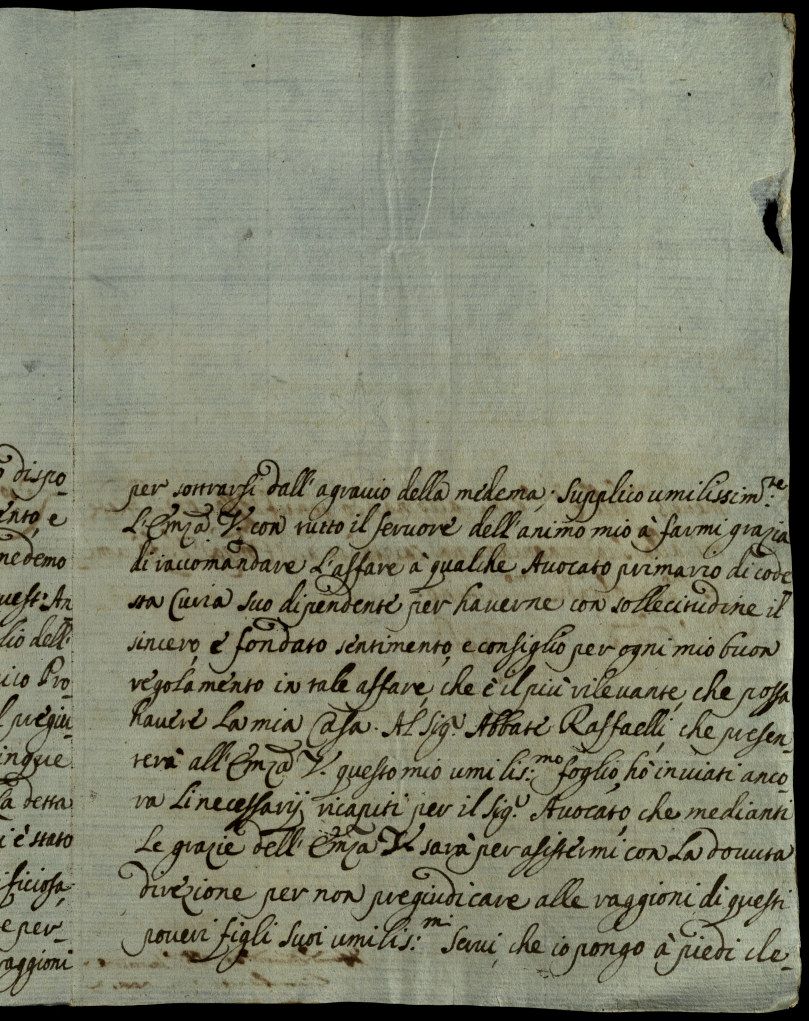 dispo-
ento, e
medemo
quest: An
lio dell:
ico Pro-
l pregiu-
inque
la detta
i è stato
ificiosa
e per-
raggioni
per sottrarsi dall' agravio della medema; Supplico umilissim.te
L'Emza V. con tutto il fervore dell'animo mio à farmi grazia
di raccomandare l'affare à qualche Avocato primario di code
sta Curia suo dipendente per haverne con sollecitudine il
sincero, e fondato sentimento, e consiglio per ogni mio buon
regolamento in tale affare, che è il più rilevante, che possa
havere la mia Casa. Al Sig.r Abbate Raffaelli, che presen-
terà all'Emza V. questo mio umilis:mo foglio hò inviati anco-
ra li necessarij ricapiti per il Sig.r Avocato, che medianti
le grazie dell' Emza V. sarà per asistermi con la dovuta
direzione per non pregiudicare alle raggioni di questi
poveri figli suoi umilis:mi Servi, che io pongo à piedi cle-